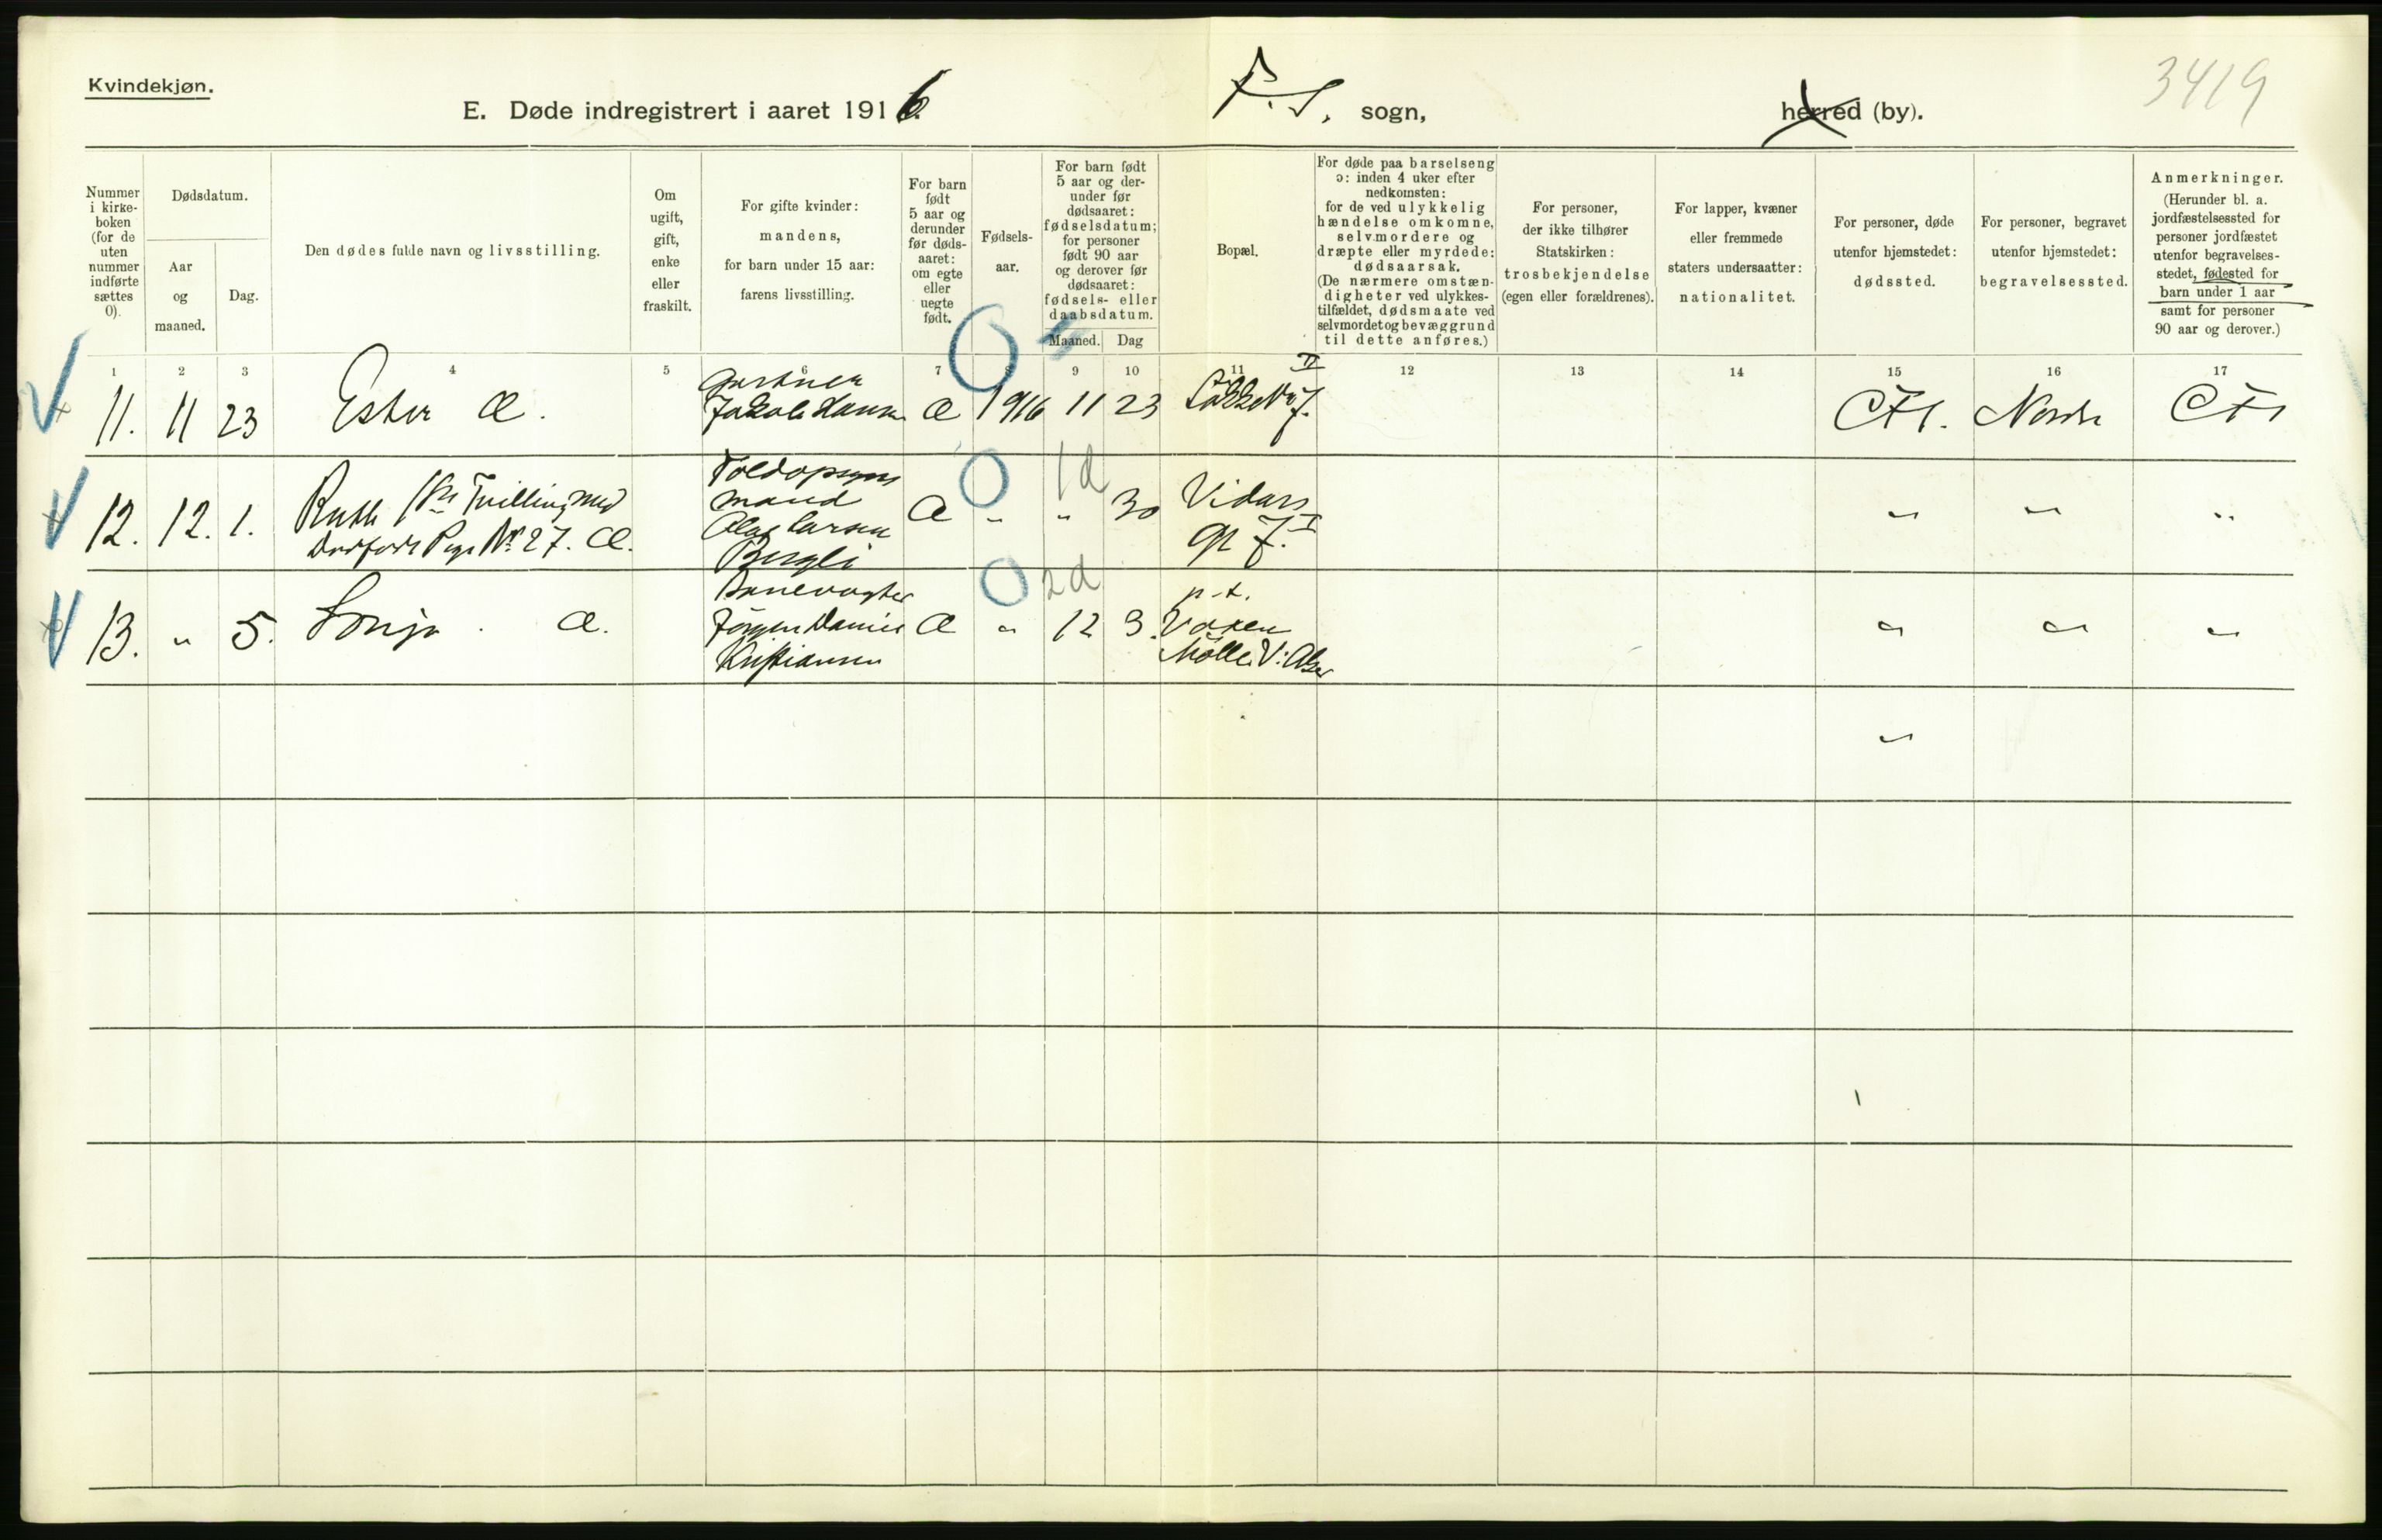 Kvindekjøn.
E. Døde indregistrert i aaret 1916.
sogn,
herred (by).
3419
Nummer i kirkeboken (for de uten nummer indførte sættes 0).
Dødsdatum.
Aar og maaned.
Dag.
Den dødes fulde navn og livsstilling.
Om ugift, gift, enke eller fraskilt.
For gifte kvinder: mandens, for barn under 15 aar: farens livsstilling.
For barn født 5 aar og derunder før dødsaaret: om egte eller uegte født.
Fødselsaar.
For barn født 5 aar og derunder før dødsaaret: fødselsdatum; for personer født 90 aar og derover før dødsaaret: fødsels- eller daabsdatum.
Maaned.
Dag
Bopæl.
For døde paa barselseng ɔ: inden 4 uker efter nedkomsten: for de ved ulykkelig hændelse omkomne, selvmordere og dræpte eller myrdede: dødsaarsak. (De nærmere omstændigheter ved ulykkestilfældet, dødsmaate ved selvmordet og bevæggrund til dette anføres.)
For personer, der ikke tilhører Statskirken: trosbekjendelse (egen eller forældrenes).
For lapper, kvæner eller fremmede staters undersaatter: nationalitet.
For personer, døde utenfor hjemstedet: dødssted.
For personer, begravet utenfor hjemstedet: begravelsessted.
Anmerkninger. (Herunder bl. a. jordfæstelsessted for personer jordfæstet utenfor begravelsesstedet, fødested for barn under 1 aar samt for personer 90 aar og derover.)
1 2 3 4 5 6 7 8 9 10 11 12 13 14 15 16 17
11. 11 23 Ester Æ. Gartner Jakob Hansen Æ 1916 11 23 7. II Nordre
12. 12. 1. Ruth Tvilling med Dødfødt Pige Nr. 27. Æ. Toldopsynsmand Olaf Larsen Bergli Æ " " 30 Vidars gt 7. I " " "
0 1 d
13. " 5. Sonja. Æ. Banevogter Jörgen Daniel Kristiansen Æ " 12 3. p.t. Voxen Mölle V: Aker " " "
0 2 d
"